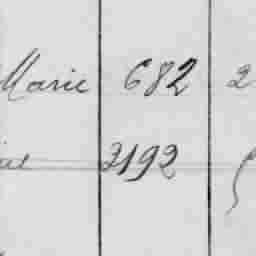 Marie 682 2
3192